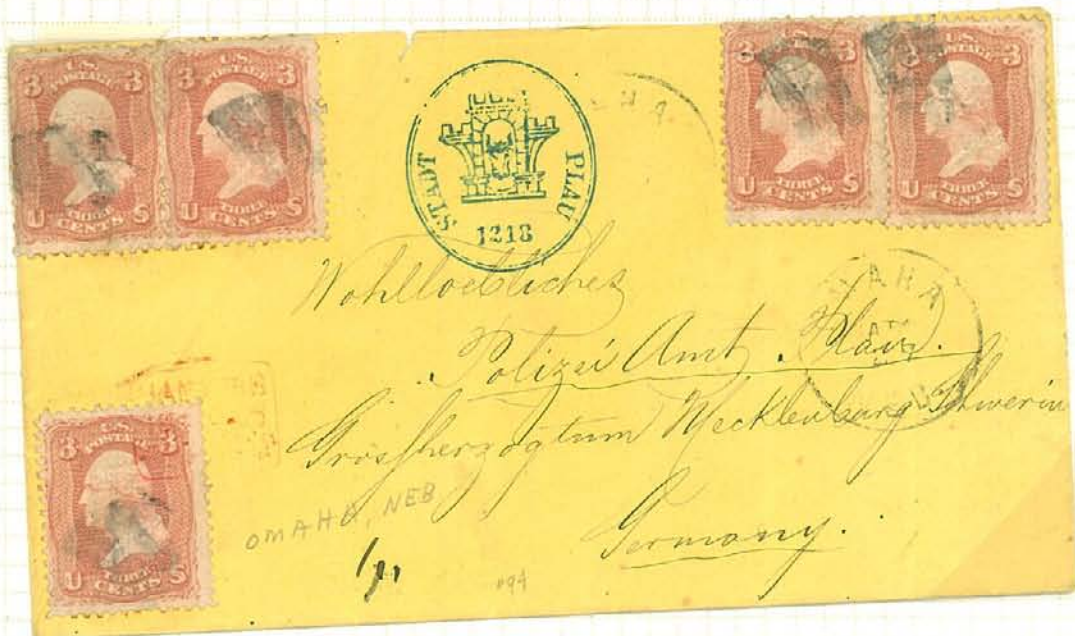 U.S. POSTAGE
3 3
U THREE CENTS S
U.S. POSTAGE
3 3
U THREE CENTS S
STADT PLAU
1218
HA
U.S. POSTAGE
3 3
U THREE CENTS S
U.S. POSTAGE
3 3
U THREE CENTS S
Wohlloebliches
Polizei Amt Plau.
Grossherzogtum Mecklenburg Schwerin
Germany.
MAHA
U.S. POSTAGE
3 3
U THREE CENTS S
OMAHA, NEB
#94